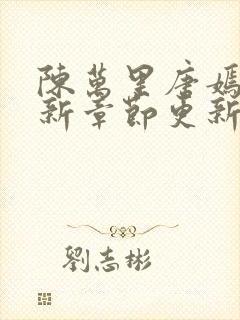 陳萬里唐嫣
新章節更新
劉志彬